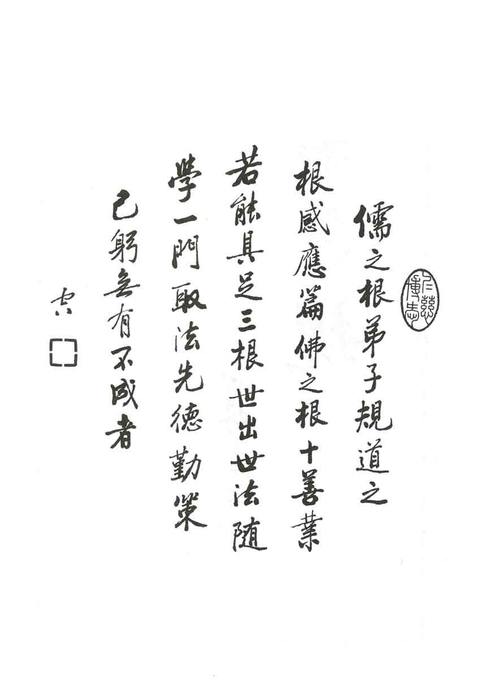 儒之根弟子規道之
根感應篇佛之根十善業
若能具足三根世出世法隨
學一門取法先德勤策
己躬無有不成者